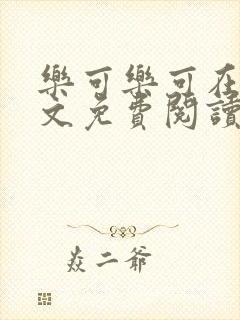 樂可樂可在
文免費閱讀
焱二爺